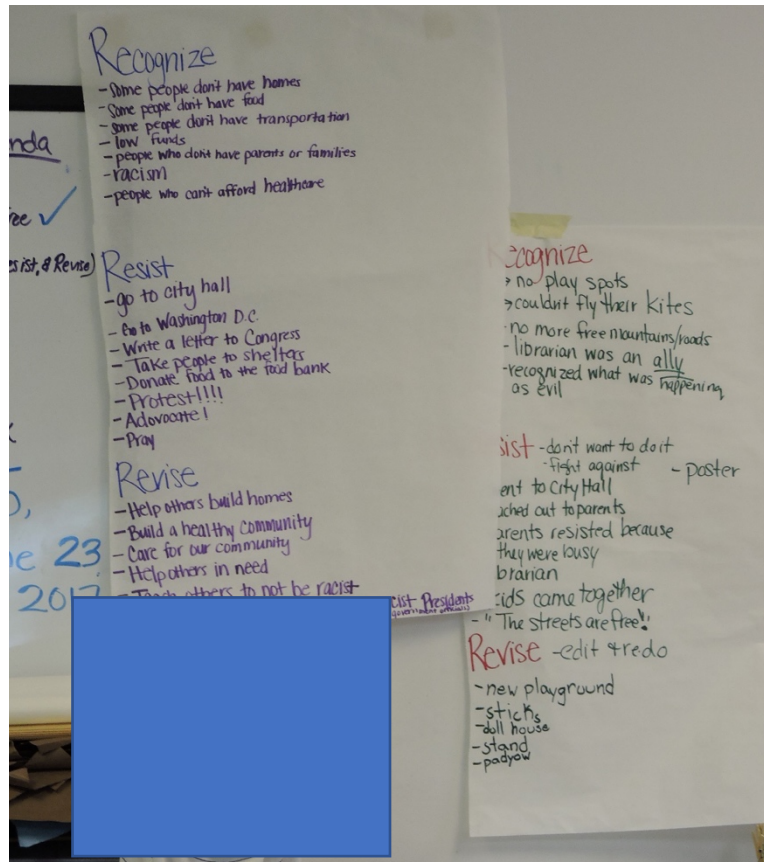 Recognize
- Some people don't have homes
- Some people don't have food
- some people don't have transportation
- low funds
- people who don't have parents or families
- racism
- people who can't afford healthcare
Resist
- go to city hall
- Go to Washington D.C.
- Write a letter to Congress
- Take people to shelters
- Donate food to the food bank
- Protest!!!!
- Adovocate!
- Pray
Revise
- Help others build homes
- Build a healthy community
- Care for our community
- Help others in need
- Teach others to not be racist
cist Presidents
nda
ree ✓
esist, & Revise)
e 23
2017
ecognize
no play spots
couldn't fly their kites
no more free mountains/roads
- librarian was an ally
- recognized what was happening
as evil
sist - don't want to do it
- fight against - poster
ent to City Hall
ached out to parents
arents resisted because
they were busy
brarian
kids came together
- "The streets are free"!
Revise - edit & redo
- new playground
- sticks
- doll house
- stand